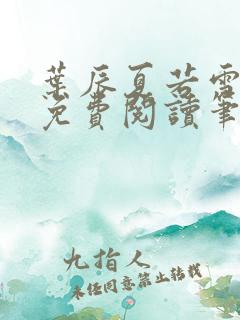 葉辰夏若雪
免費閱讀筆
九指人
未经同意禁止转载